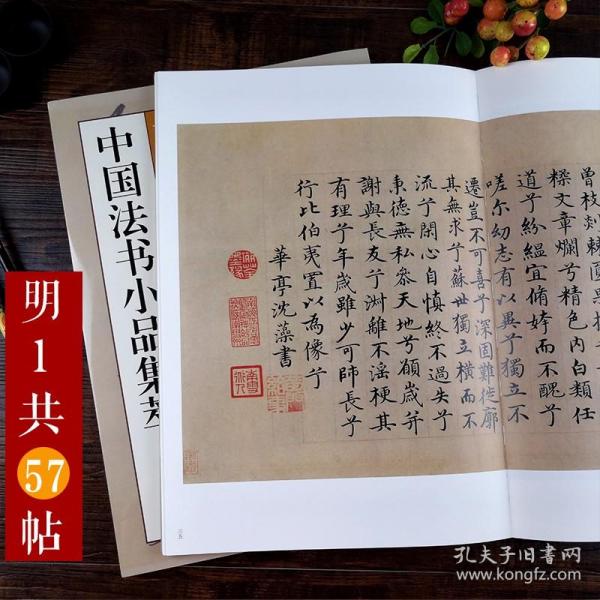 中国法书小品集
明1共57帖
曾枝剡棘圓果
糅文章爛兮精色内白類任
道兮紛緼宜脩姱而不醜兮
嗟尔幼志有以異兮獨立不
遷豈不可喜兮深固難徙廓
其無求兮蘇世獨立横而不
流兮閑心自慎終不過失兮
秉德無私叅天地兮願歲并
謝與長友兮淑離不淫梗其
有理兮年歲雖少可師長兮
行比伯夷置以為像兮
華亭沈藻書
孔夫子旧书网
www.kongfz.com